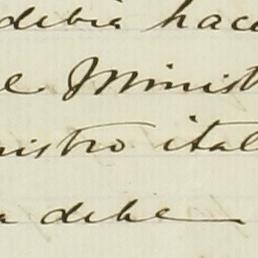 debia hace
el Minist
nistro ital
a debe